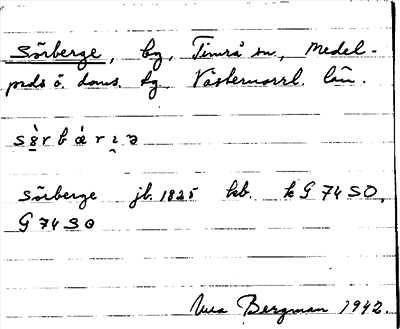 Sörberge, by, Timrå sn, Medel-
pads ö. doms. tg Västernorrl. län.
Sörberge jb. 1825 kb. k G 74 SO,
G 74 SO
Bergman 1942.